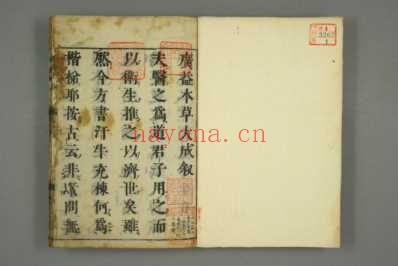 廣益本草大成叙
夫醫之爲道君子用之而
以衛生推之以濟世矣雖
然今方書汗牛充棟何爲
階梯耶按古云非素問無
nayona.cn
3262
1